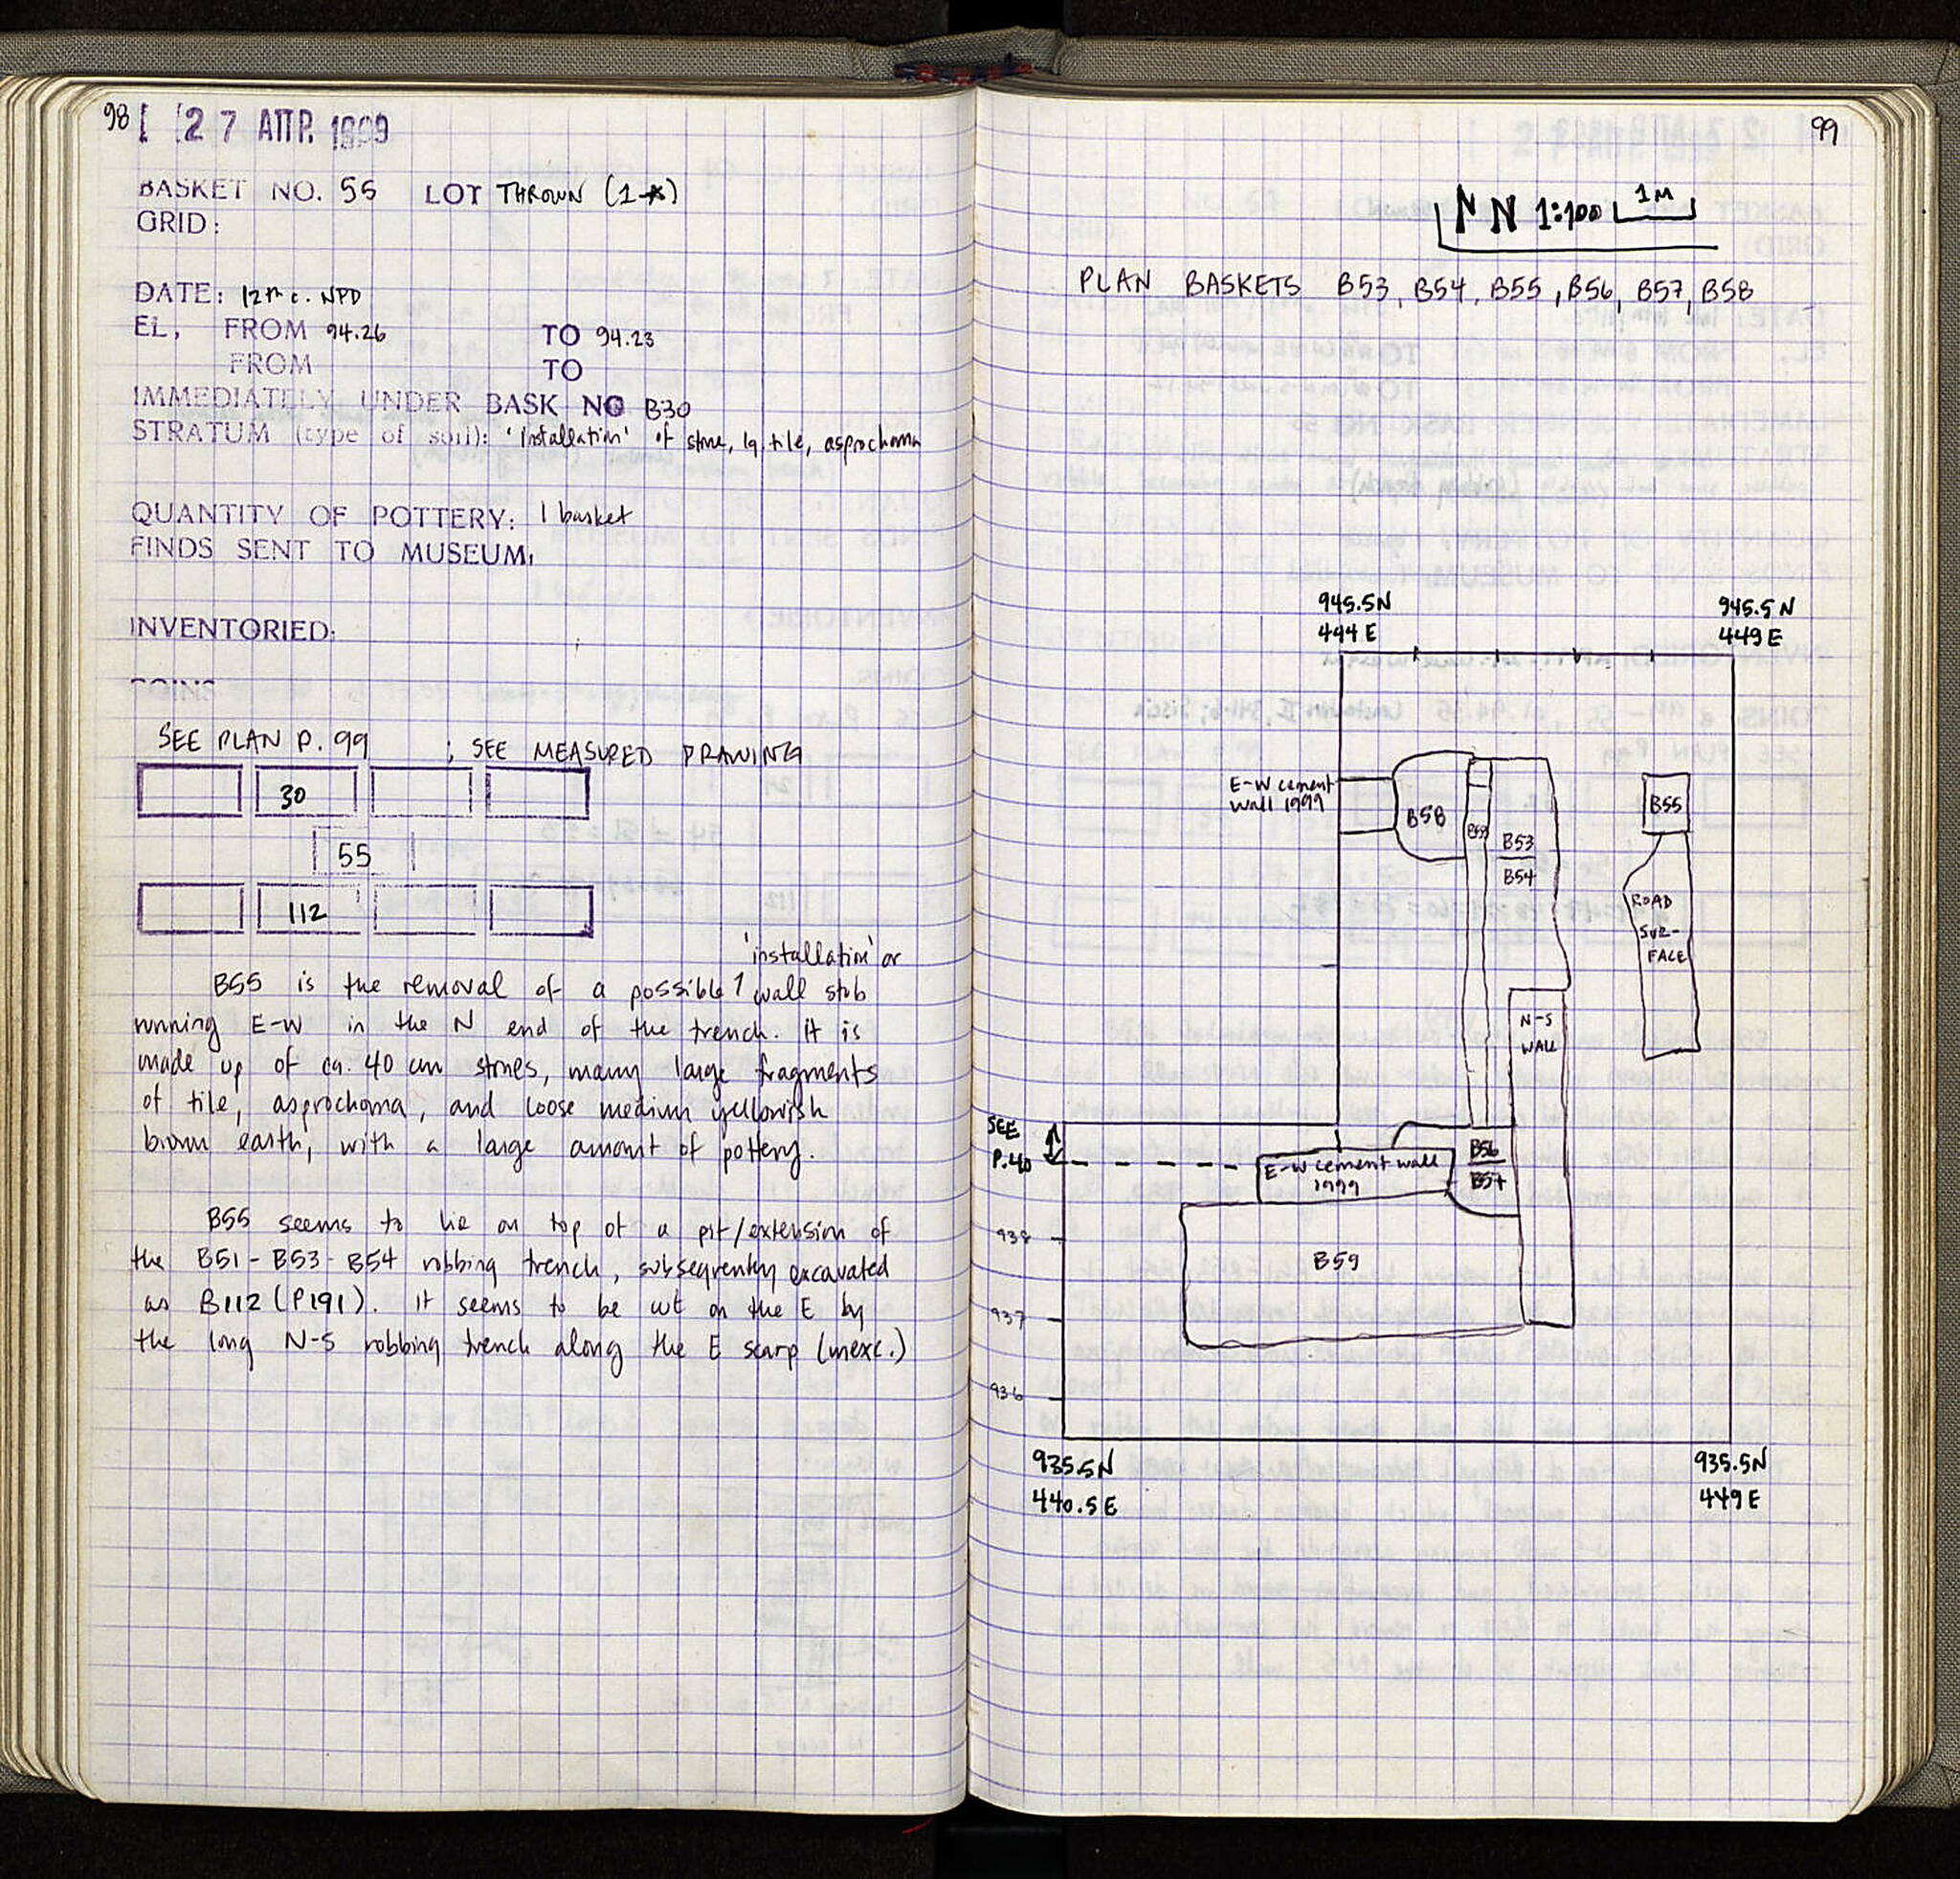 98
27 ΑΠΡ. 1999
BASKET NO. 55 LOT THROWN
GRID:
DATE: 12th c. NPD
EL, FROM 94.26 TO 94.23
FROM TO
IMMEDIATELY UNDER BASK NO B30
STRATUM (type of soil): 'installation' of stone, lg tile, asprochoma
QUANTITY OF POTTERY: 1 basket
FINDS SENT TO MUSEUM:
INVENTORIED:
COINS
SEE PLAN P. 99 ; SEE MEASURED DRAWING
30
55
112
'installation' or
B55 is the removal of a possible wall stub
running E-W in the N end of the trench. It is
made up of ca. 40 cm stones, many large fragments
of tile, asprochoma, and loose medium yellowish
brown earth, with a large amount of pottery.
B55 seems to lie on top of a pit/extension of
the B51-B53-B54 robbing trench, subsequently excavated
as B112 (P191). It seems to be cut on the E by
the long N-S robbing trench along the E scarp (unexc.)
99
N N 1:100 1M
PLAN BASKETS B53, B54, B55, B56, B57, B58
945.5N
444E
945.5N
449E
E-W cement
wall 1999
B58
B53
B54
B55
ROAD
SUR-
FACE
N-S
WALL
SEE
P.40
E-W cement wall
1999
B56
B57
938
B59
937
936
935.5N
440.5E
935.5N
449E